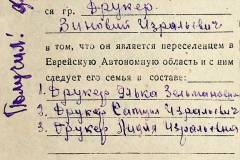 ся гр. Друкер
Зиновий Изральевич
в том, что он является переселенцем в
Еврейскую Автономную область и с ним
следует его семья в составе:
1. Друкер Элька Зельмановна
2. Друкер Самуил Изральевич
3. Друкер Лидия Изральевна
Получил: